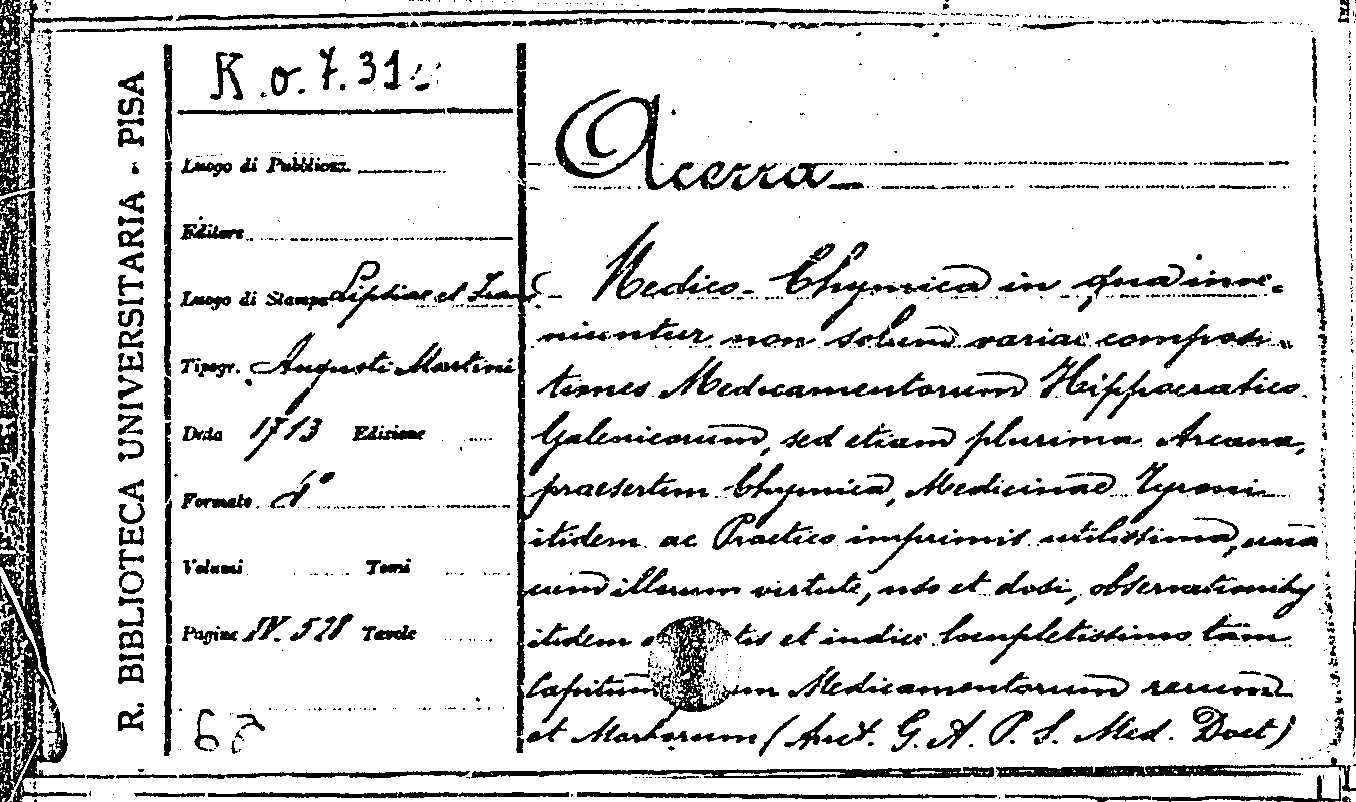 R. BIBLIOTECA UNIVERSITARIA - PISA
K.o.7.31
Luogo di Pubblicaz.
Editore
Luogo di Stampa Lipsiae et
Tipogr. Augusti Martini
Data 1713 Edizione
Formato
Volumi Tomi
Pagine IV. 528 Tavole
Acerra
Medico-Chymica in qua inve-
niuntur non solum variae composi-
tiones Medicamentorum Hippocratico
Galenicorum, sed etiam plurima Arcana,
praesertim Chymica, Medicinae Tyroni
itidem ac Practico imprimis utilissima, una
cum illorum virtute, uso et dosi, observationiby
itidem et indice locupletissimo tam
Capitum Medicamentorum rerum
et Morborum (Auct. G. A. P. S. Med. Doct)